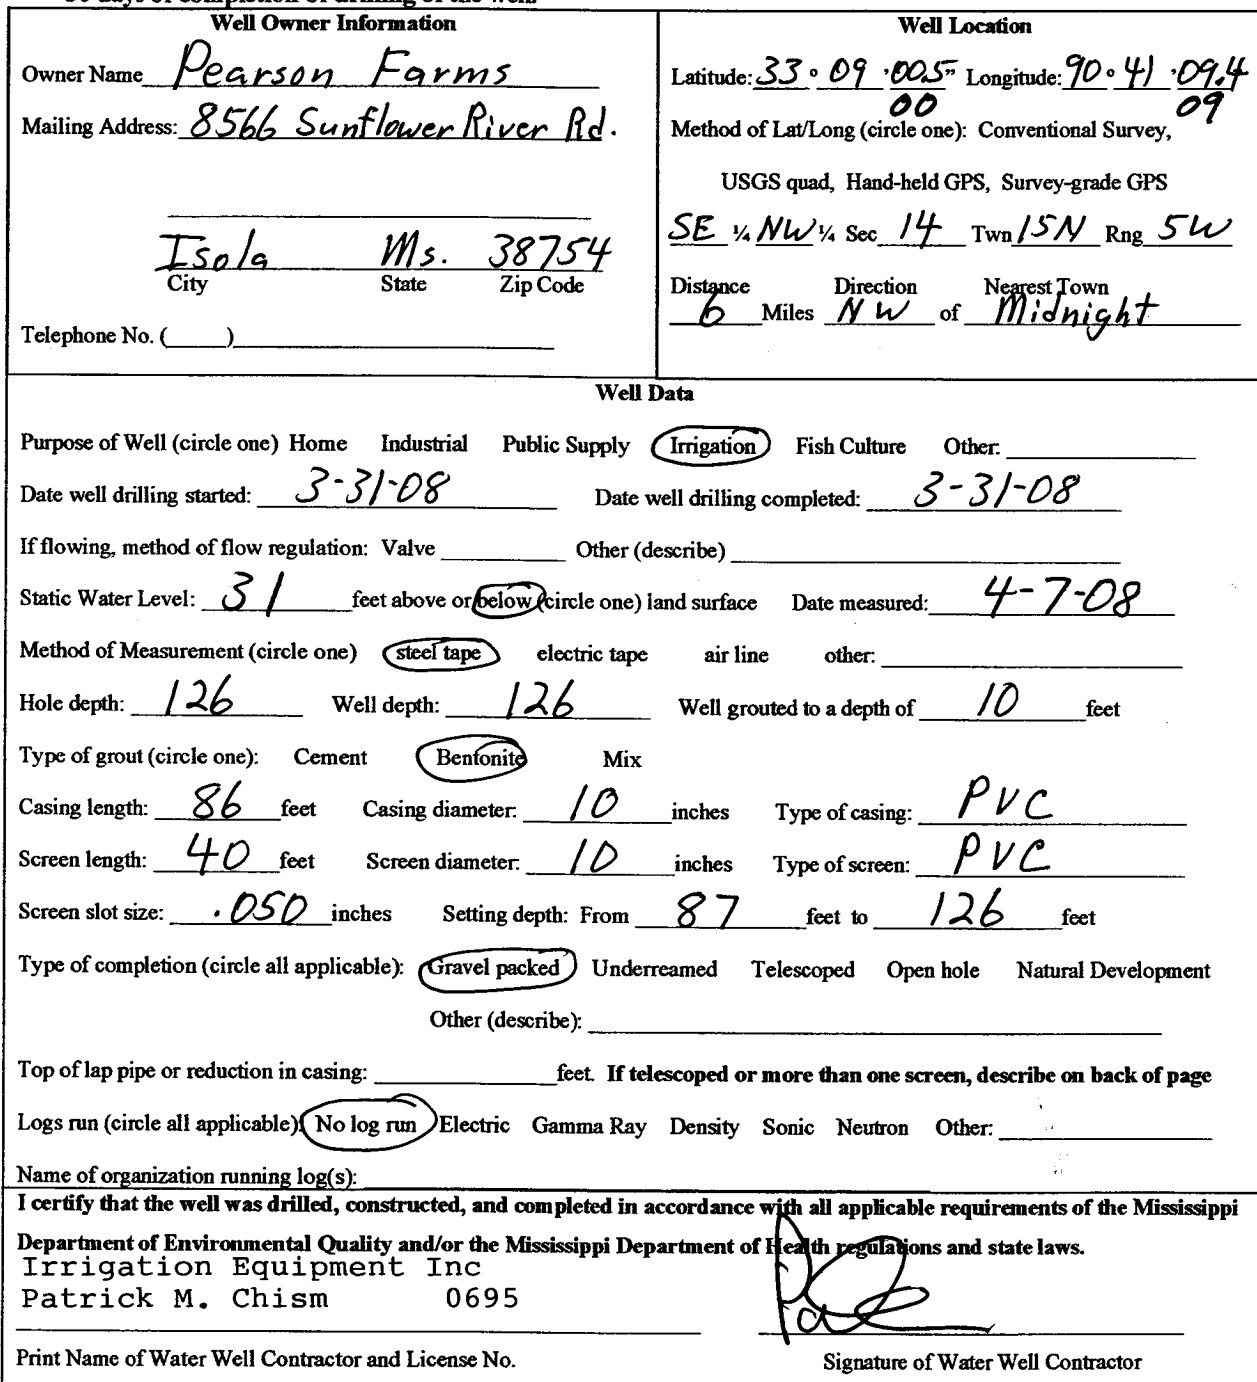 Well Owner Information
Owner Name Pearson Farms
Mailing Address: 8566 Sunflower River Rd.
Isola Ms. 38754
City State Zip Code
Telephone No. (_____)
Well Location
Latitude: 33° 09 '005" Longitude: 90° 41 '09.4
00 09
Method of Lat/Long (circle one): Conventional Survey,
USGS quad, Hand-held GPS, Survey-grade GPS
SE ¼ NW ¼ Sec 14 Twn 15N Rng 5W
Distance Direction Nearest Town
6 Miles NW of Midnight
Well Data
Purpose of Well (circle one) Home Industrial Public Supply Irrigation Fish Culture Other:
Date well drilling started: 3-31-08 Date well drilling completed: 3-31-08
If flowing, method of flow regulation: Valve Other (describe)
Static Water Level: 31 feet above or below (circle one) land surface Date measured: 4-7-08
Method of Measurement (circle one) steel tape electric tape air line other:
Hole depth: 126 Well depth: 126 Well grouted to a depth of 10 feet
Type of grout (circle one): Cement Bentonite Mix
Casing length: 86 feet Casing diameter: 10 inches Type of casing: PVC
Screen length: 40 feet Screen diameter: 10 inches Type of screen: PVC
Screen slot size: .050 inches Setting depth: From 87 feet to 126 feet
Type of completion (circle all applicable): Gravel packed Underreamed Telescoped Open hole Natural Development
Other (describe):
Top of lap pipe or reduction in casing: feet. If telescoped or more than one screen, describe on back of page
Logs run (circle all applicable) No log run Electric Gamma Ray Density Sonic Neutron Other:
Name of organization running log(s):
I certify that the well was drilled, constructed, and completed in accordance with all applicable requirements of the Mississippi
Department of Environmental Quality and/or the Mississippi Department of Health regulations and state laws.
Irrigation Equipment Inc
Patrick M. Chism 0695
Print Name of Water Well Contractor and License No. Signature of Water Well Contractor